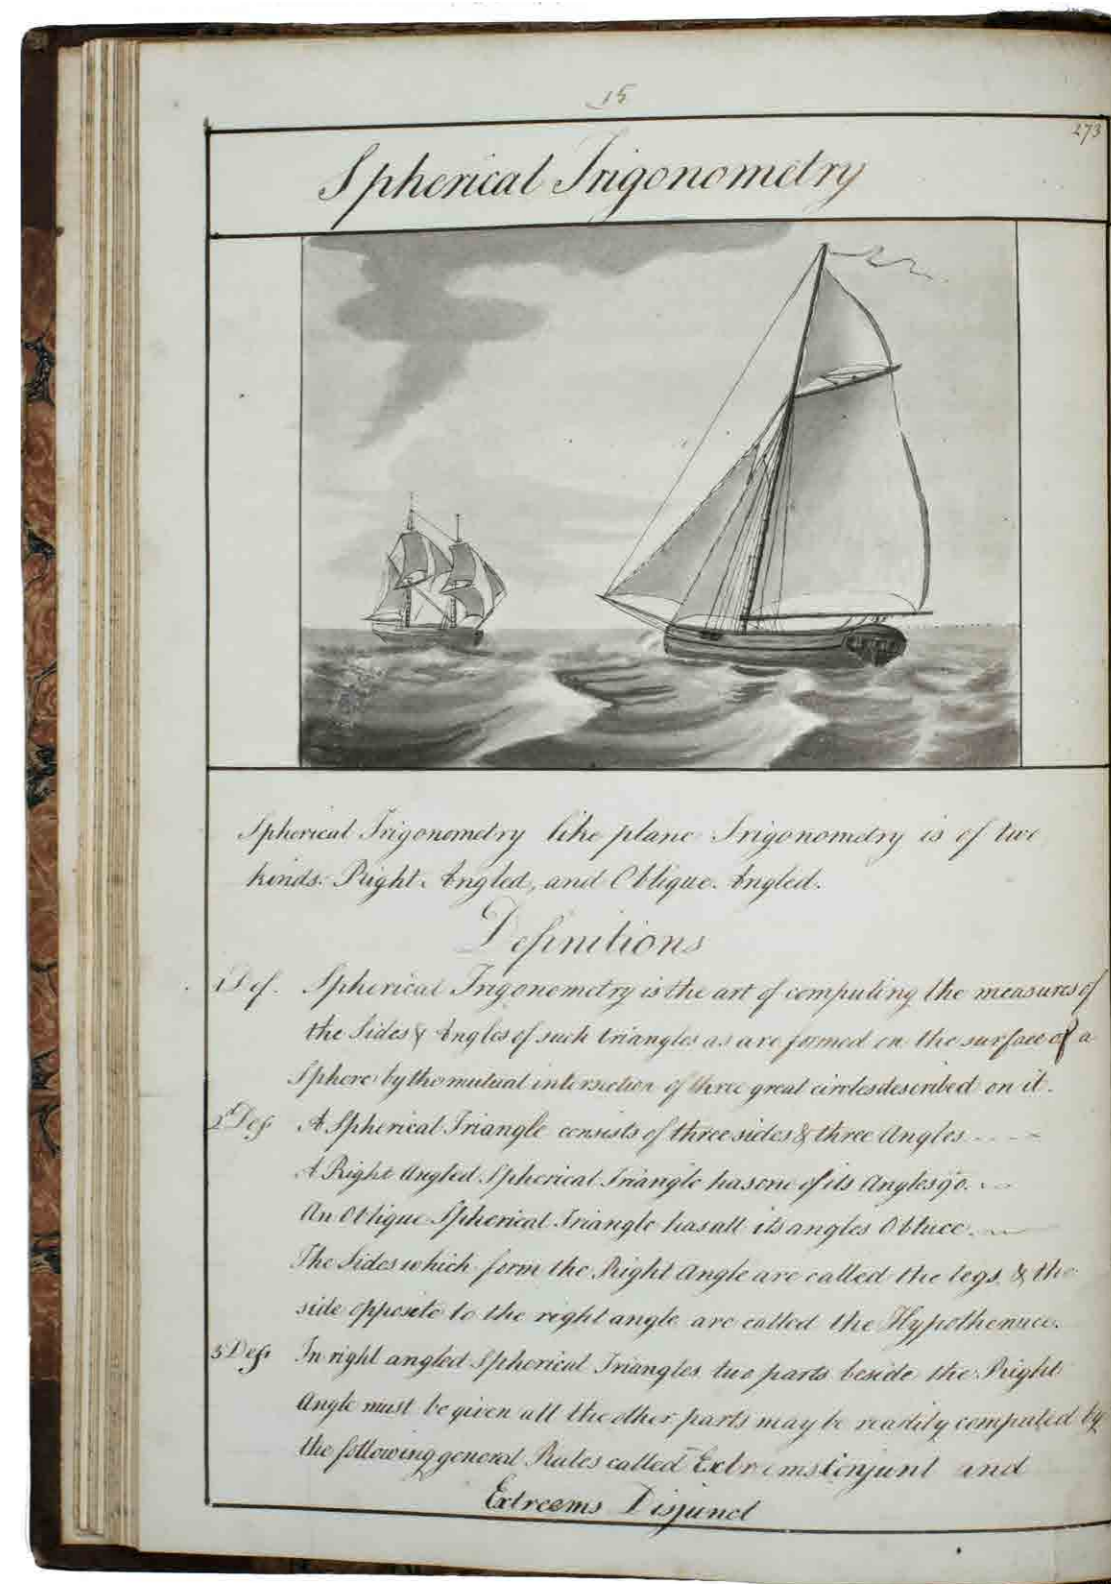 15
273
Spherical Trigonometry
Spherical Trigonometry like plane Trigonometry is of two
kinds. Right. Angled, and Oblique. Angled.
Definitions
1 Def. Spherical Trigonometry is the art of computing the measures of
the Sides & Angles of such triangles as are formed on the surface of a
Sphere by the mutual intersection of three great circles described on it.
2d Def. A Spherical Triangle consists of three sides & three Angles
A Right Angled Spherical Triangle has one of its Angles 90.
An Oblique Spherical Triangle has all its angles Obtuce.
The Sides which form the Right Angle are called the legs, & the
side opposite to the right angle are called the Hypothenuce.
3 Def. In right angled Spherical Triangles two parts beside the Right
Angle must be given all the other parts may be readily computed by
the following general Rules called Extrems Conjunt and
Extreems Disjunct